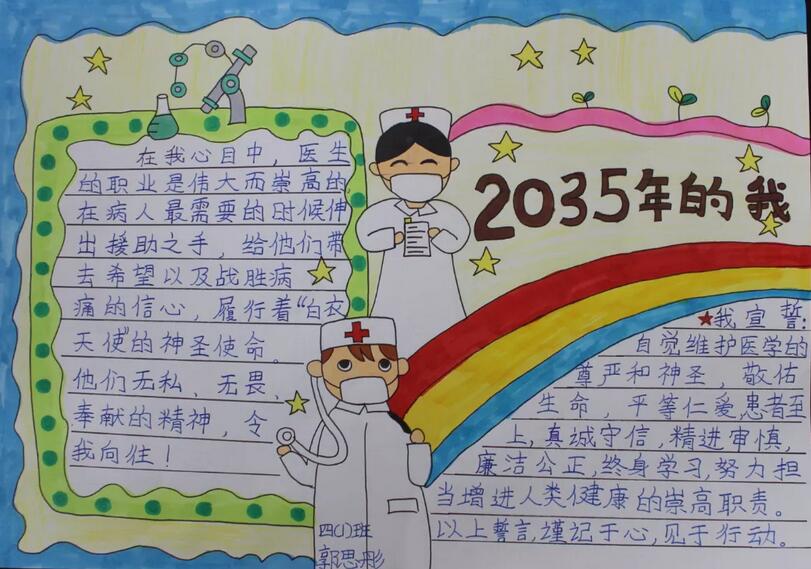 2035年的我
在我心目中，医生
的职业是伟大而崇高的
在病人最需要的时候伸
出援助之手，给他们带
去希望以及战胜病
痛的信心，履行着“白衣
天使”的神圣使命。
他们无私、无畏、
奉献的精神，令
我向往！
我宣誓：
自觉维护医学的
尊严和神圣，敬佑
生命，平等仁爱，患者至
上，真诚守信，精进审慎，
廉洁公正，终身学习，努力担
当增进人类健康的崇高职责。
以上誓言，谨记于心，见于行动。
四(1)班
郭思彤